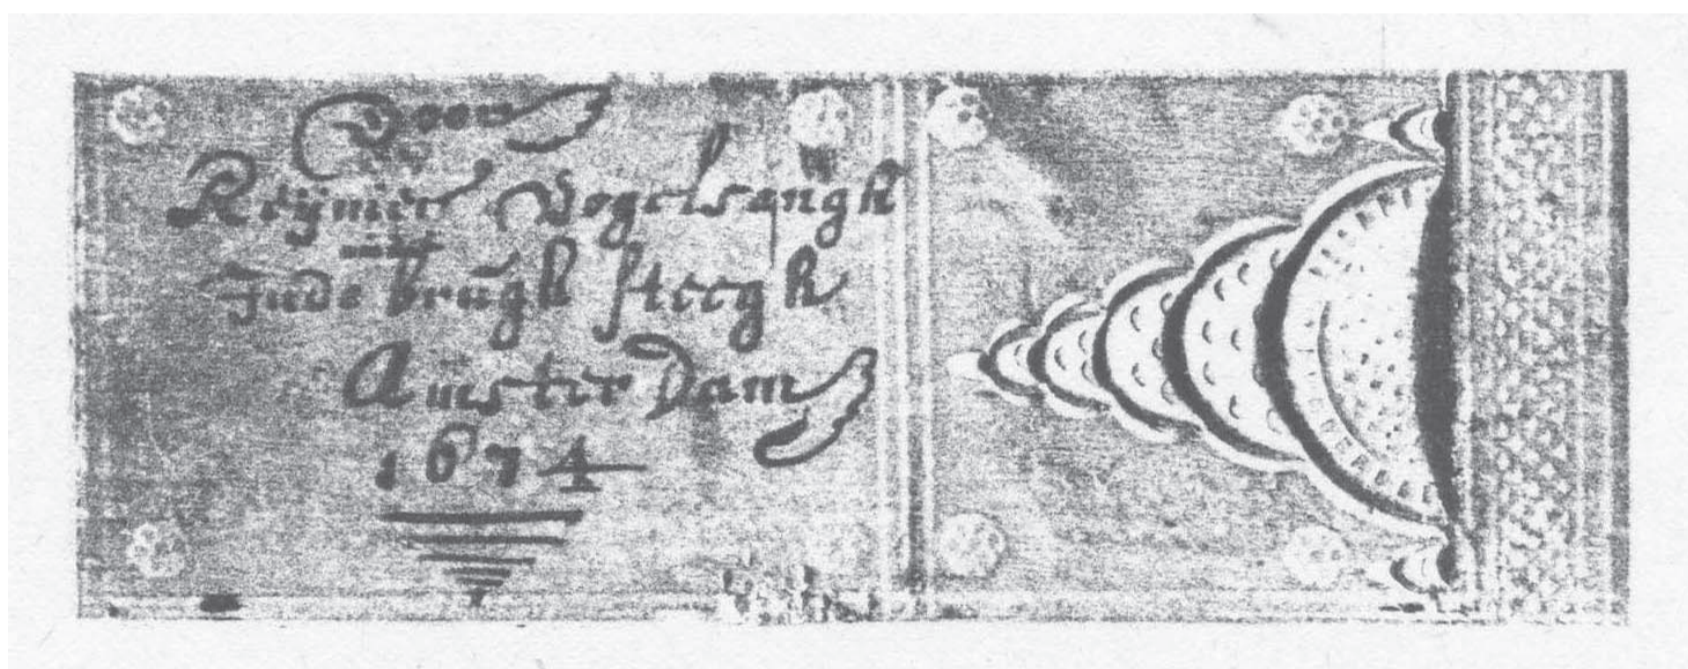 Door
Reÿnier Vogelsangh
Inde brŭgh steegh
AmsterDam
1674